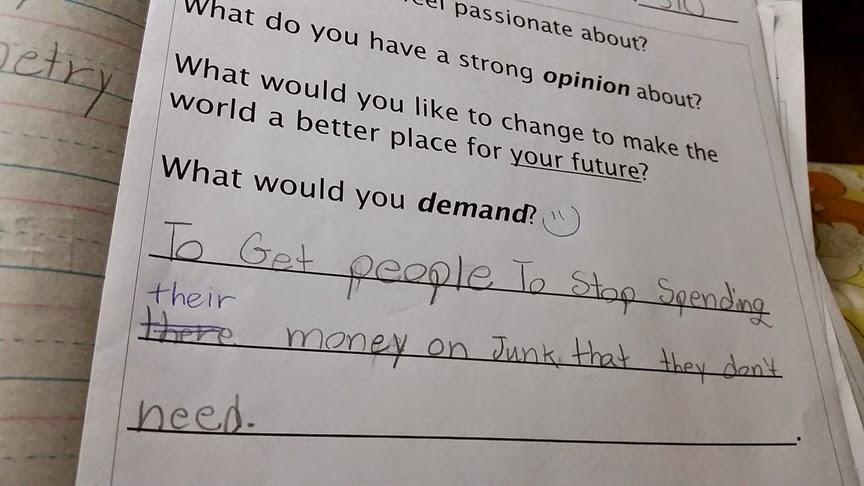 passionate about?
What do you have a strong opinion about?
What would you like to change to make the
world a better place for your future?
What would you demand?
To Get people To Stop Spending
their
there money on Junk that they don't
need.